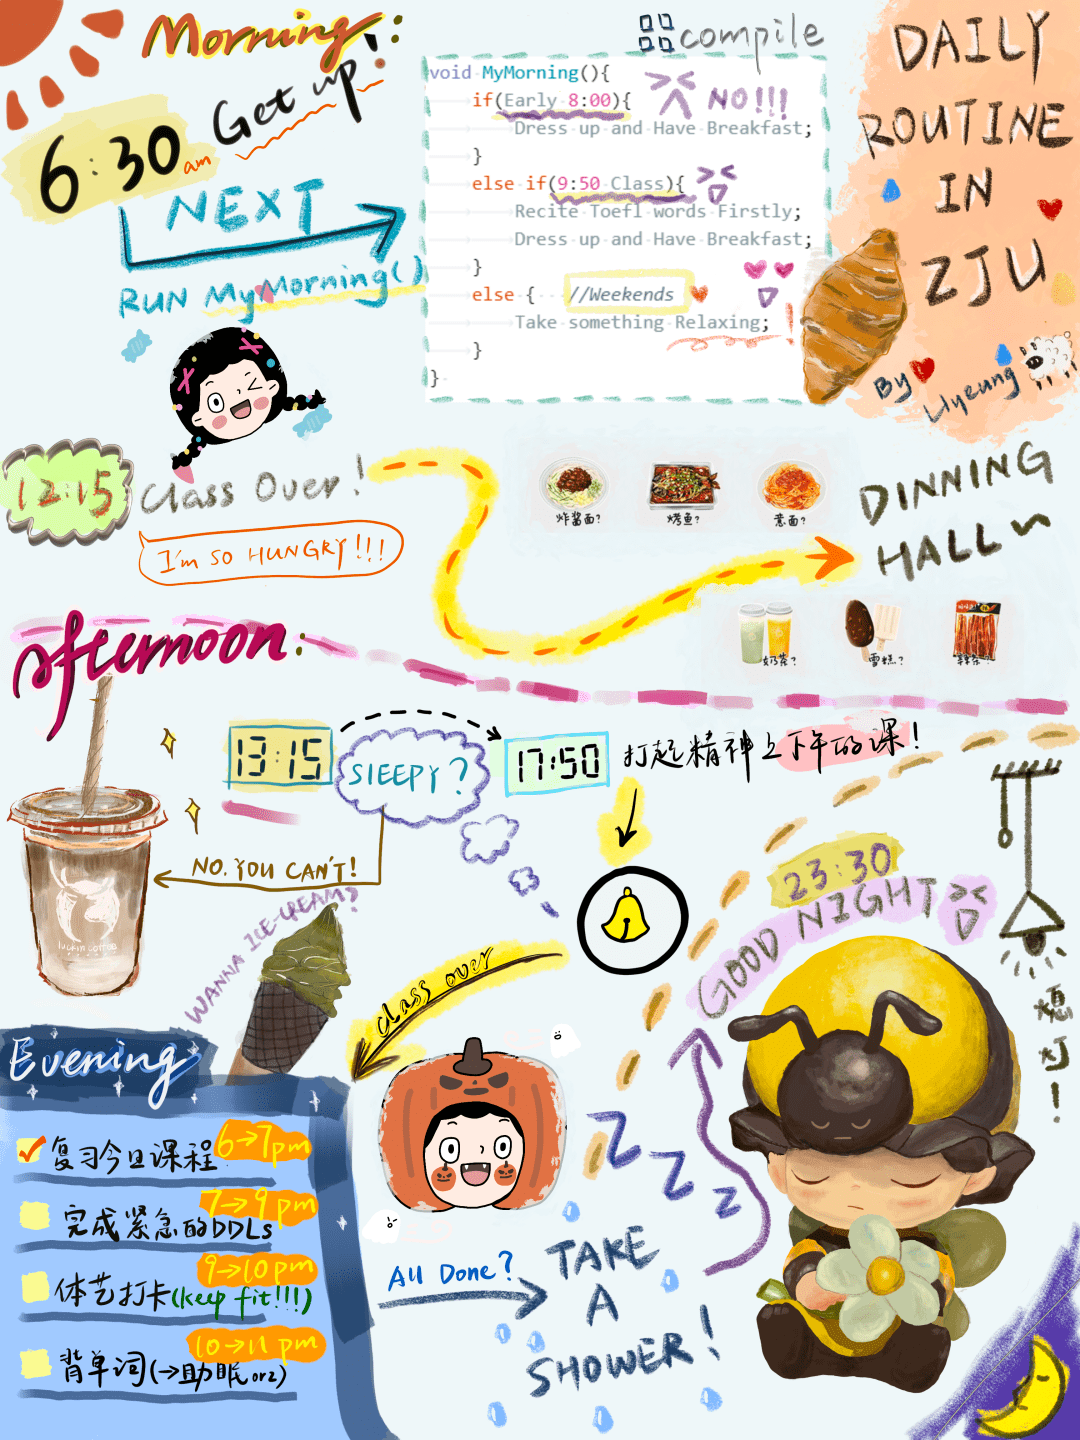 Morning:
Get up!
6:30 am
NEXT
RUN MyMorning()
compile
void MyMorning(){
if(Early 8:00){
NO!!!
Dress up and Have Breakfast;
}
else if(9:50 Class){
Recite Toefl words Firstly;
Dress up and Have Breakfast;
}
else { //Weekends
Take something Relaxing;
}
}
DAILY
ROUTINE
IN
ZJU
By
12:15 Class Over!
I'm SO HUNGRY!!!
炸酱面?
烤鱼?
意面?
DINNING
HALL
奶茶?
雪糕?
辣条?
afternoon:
13:15
SlEEPY?
17:50
打起精神上下午的课!
NO. YOU CAN'T!
luckin coffee
WANNA ICE-CREAM?
class over
23:30
GOOD NIGHT
熄灯!
Evening
复习今日课程
6→7pm
完成紧急的DDLs
7→9pm
体艺打卡(keep fit!!!)
9→10pm
背单词(→助眠orz)
10→11pm
All Done?
TAKE
A
SHOWER!
Z
Z
Z